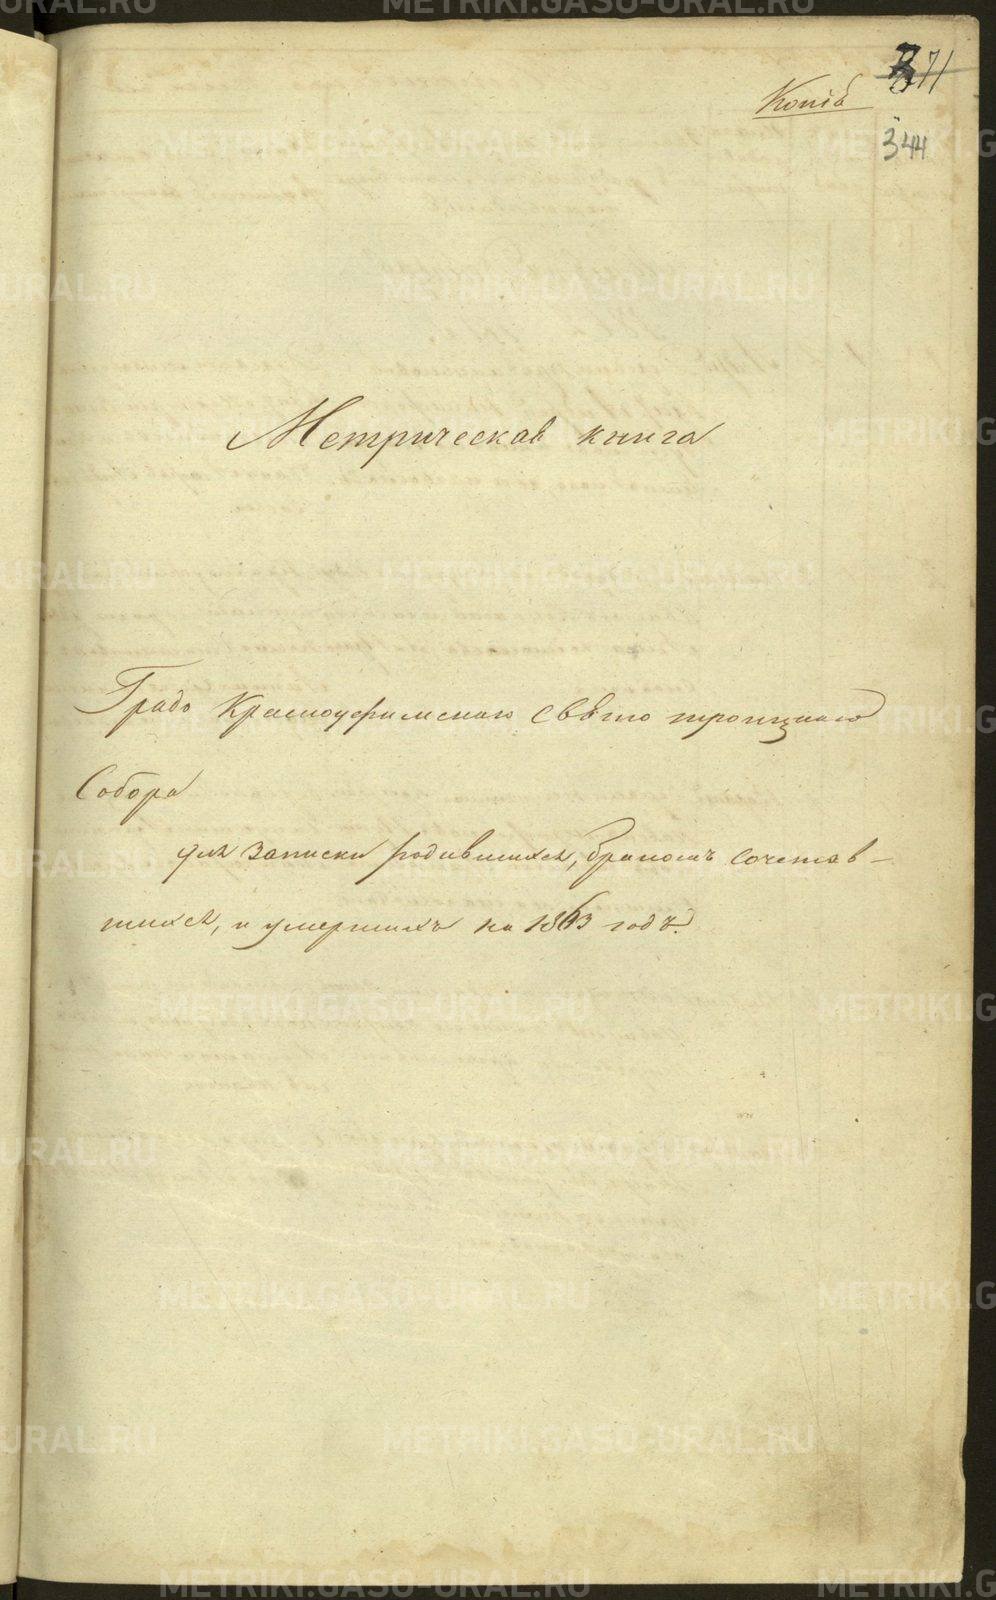 371
Копія
344
Метрическая книга
Градо Красноуфимскаго Свято троицкаго
Собора
для записки родившихся, бракомъ сочетав-
шихся, и умершихъ на 1863 годъ.
METRIKI.GASO-URAL.RU